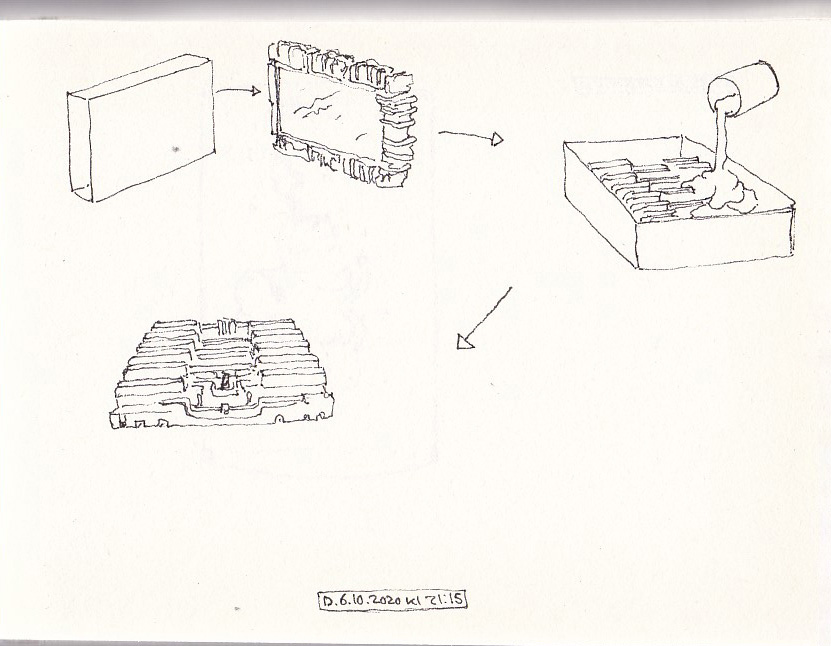 D. 6.10.2020 kl 21:15